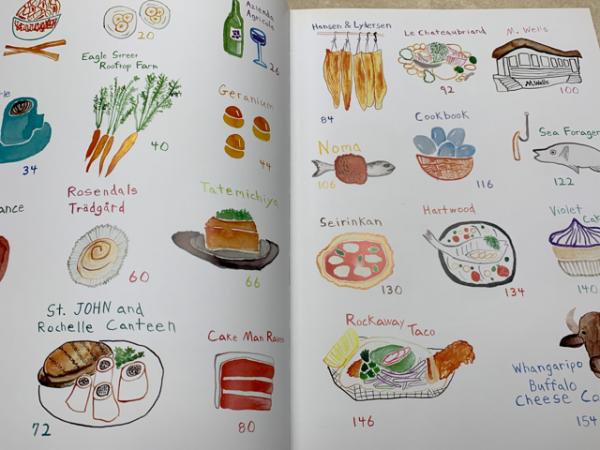 20
Azienda
Agricola
26
34
Eagle Street
Rooftop Farm
40
Geranium
44
Rosendals
Trädgård
60
Tatemichiya
66
St. JOHN and
Rochelle Canteen
72
Cake Man Raven
80
Hansen & Lydersen
84
Le Chateaubriand
92
M. Wells
M.Wells
100
Noma
106
Cookbook
116
Sea Forager
122
Seirinkan
130
Hartwood
134
Violet
Cak
140
Rockaway
Taco
146
Whangaripo
Buffalo
Cheese Co
154